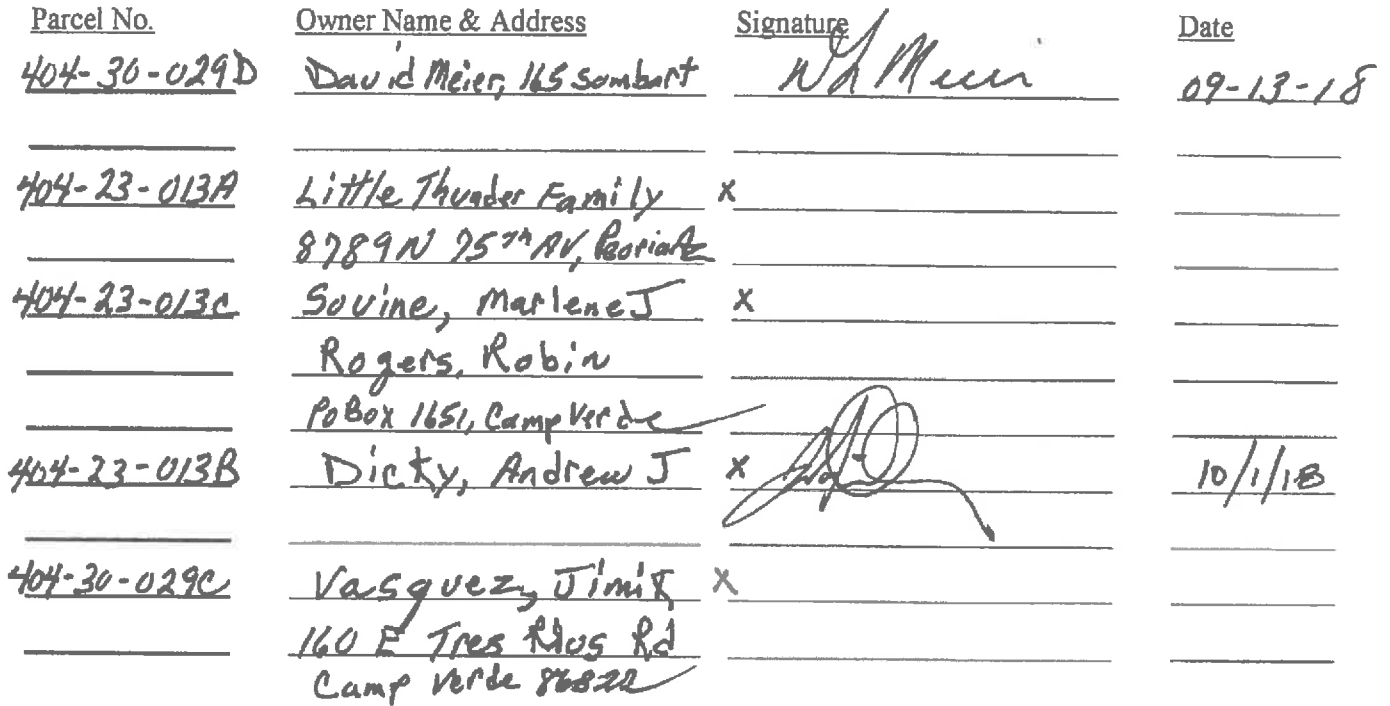 Parcel No. Owner Name & Address Signature Date
404-30-029D David Meier, 165 Sombart 09-13-18
404-23-013A Little Thunder Family x
8789 N 75th AV, Peoria AZ
404-23-013C Sovine, Marlene J x
Rogers, Robin
PO Box 1651, Camp Verde
404-23-013B Dicky, Andrew J x 10/1/18
404-30-029C Vasquez, Jimi x
160 E Tres Rios Rd
Camp Verde 86322